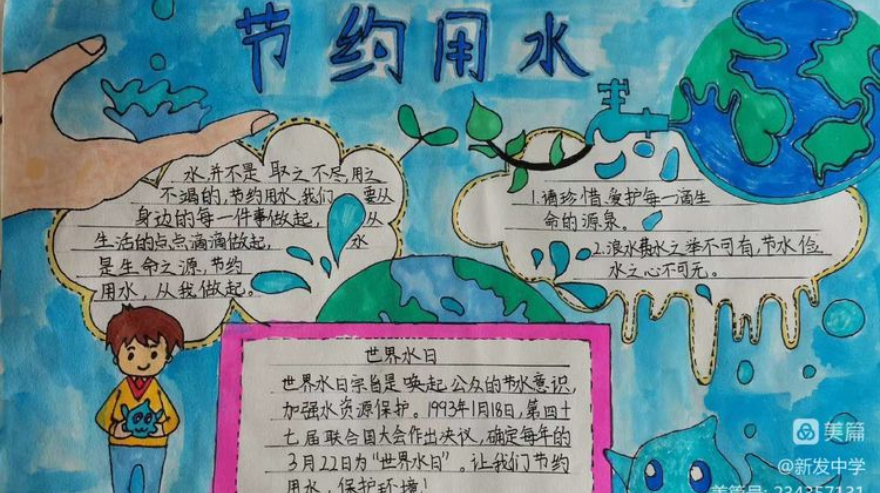 节约用水
水,并不是 取之不尽,用之
不竭的,节约用水,我们 要从
身边的每一件事做起, 从
生活的点点滴滴做起, 水
是生命之源,节约
用水,从我做起。
1.请珍惜、爱护每一滴生
命的源泉。
2.浪水费水之举不可有,节水俭
水之心不可无。
世界水日
世界水日宗旨是唤起公众的节水意识,
加强水资源保护。1993年1月18日,第四十
七届联合国大会作出决议,确定每年的
3月22日为“世界水日”。让我们节约
用水,保护环境!
美篇
@新发中学
美篇号: 234357131